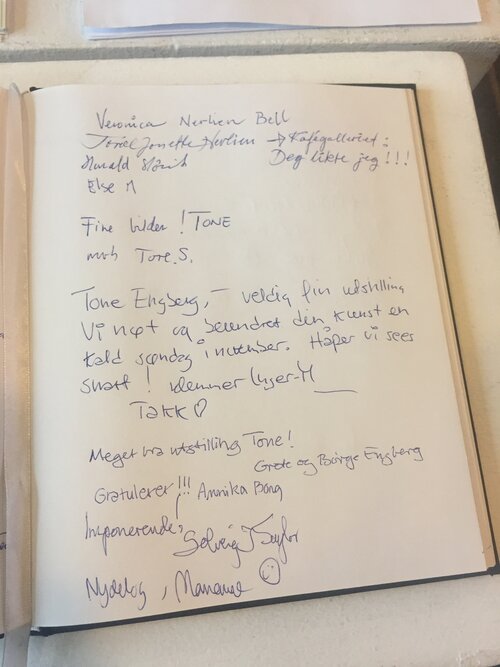 Veronica Nerlien Bell
Joral Jonette Nerlien → Kafégalleriet:
Harald Deg likte jeg!!!
Else M
Fine bilder! TONE
mvh Tore.S.
Tone Engberg, – veldig fin utstilling
Vi nøt og beundret din kunst en
kald søndag i november. Håper vi sees
snart! klemmer Inger-M
TAKK ♡
Meget bra utstilling Tone!
Grete og Børge Engberg
Gratulerer!!! Annika Bong
Imponerende,
Solveig J Taylor
Nydelig, ☺